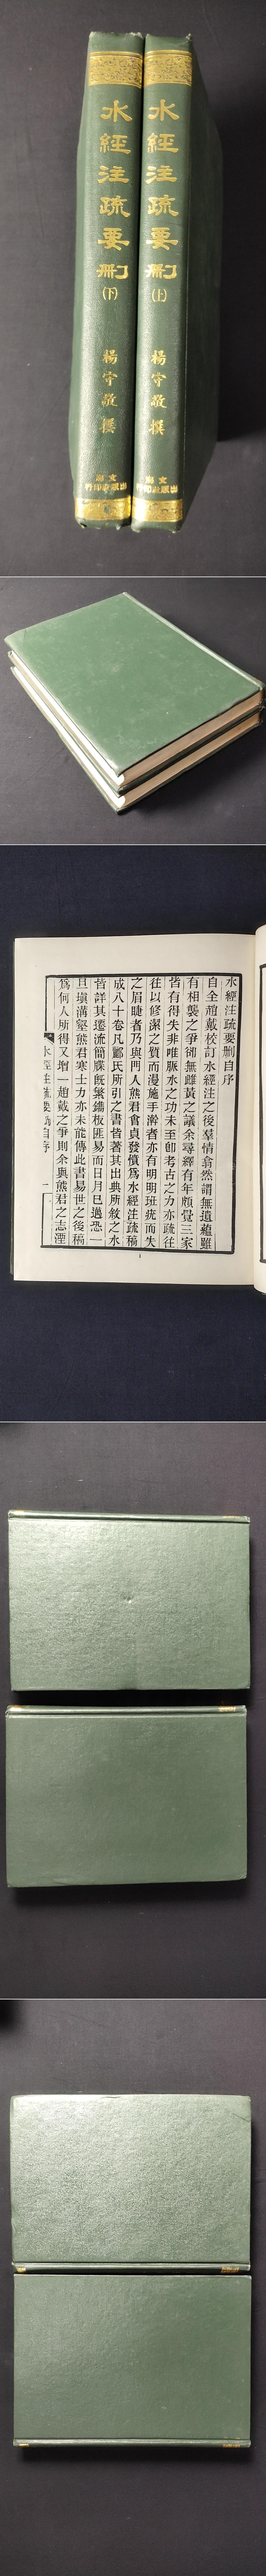 水經注疏要刪
(上)
楊守敬 撰
文海
出版社印行
水經注疏要刪
(下)
楊守敬 撰
文海
出版社印行
水經注疏要刪自序
自全趙戴校訂水經注之後羣情翕然謂無遺蘊雖
有相襲之爭卻無雌黃之議余尋繹有年頗覺三家
皆有得失非唯脈水之功未至卽考古之力亦疏往
往以修潔之質而漫施手澣者亦有明明班疣而失
之眉睫者乃與門人熊君會貞發憤爲水經注疏稿
成八十卷凡酈氏所引之書皆著其出典所敘之水
皆詳其遷流簡牘旣繁鐫板匪易而日月已邁恐一
旦塡溝壑熊君寒士力亦未能傳此書易世之後稿
爲何人所得又增一趙戴之爭則余與熊君之志湮
水經注疏要刪自序 一
1